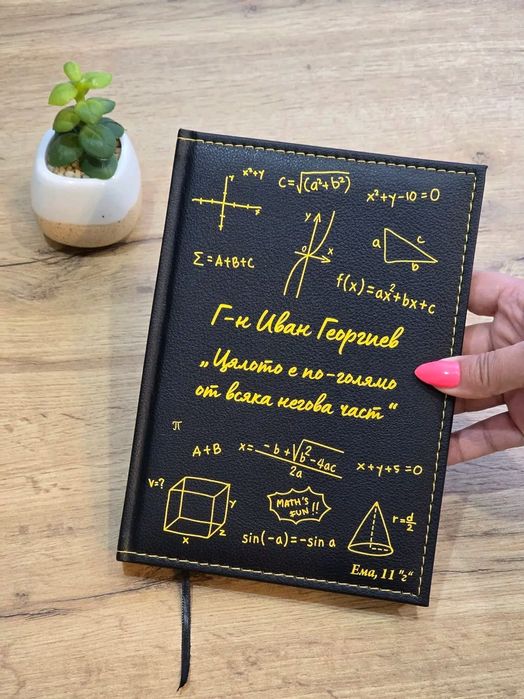 x²+y
c=√(a²+b²)
x²+y-10=0
y
0
x
a
c
b
Σ=A+B+C
f(x)=ax²+bx+c
Г-н Иван Георгиев
„Цялото е по-голямо
от всяка негова част“
π
A+B
x= -b+√b²-4ac
2a
x+y+5=0
V=?
y
x
z
MATH'S
FUN!!
r=d/2
sin(-a)=-sin a
Ема, 11 "г"